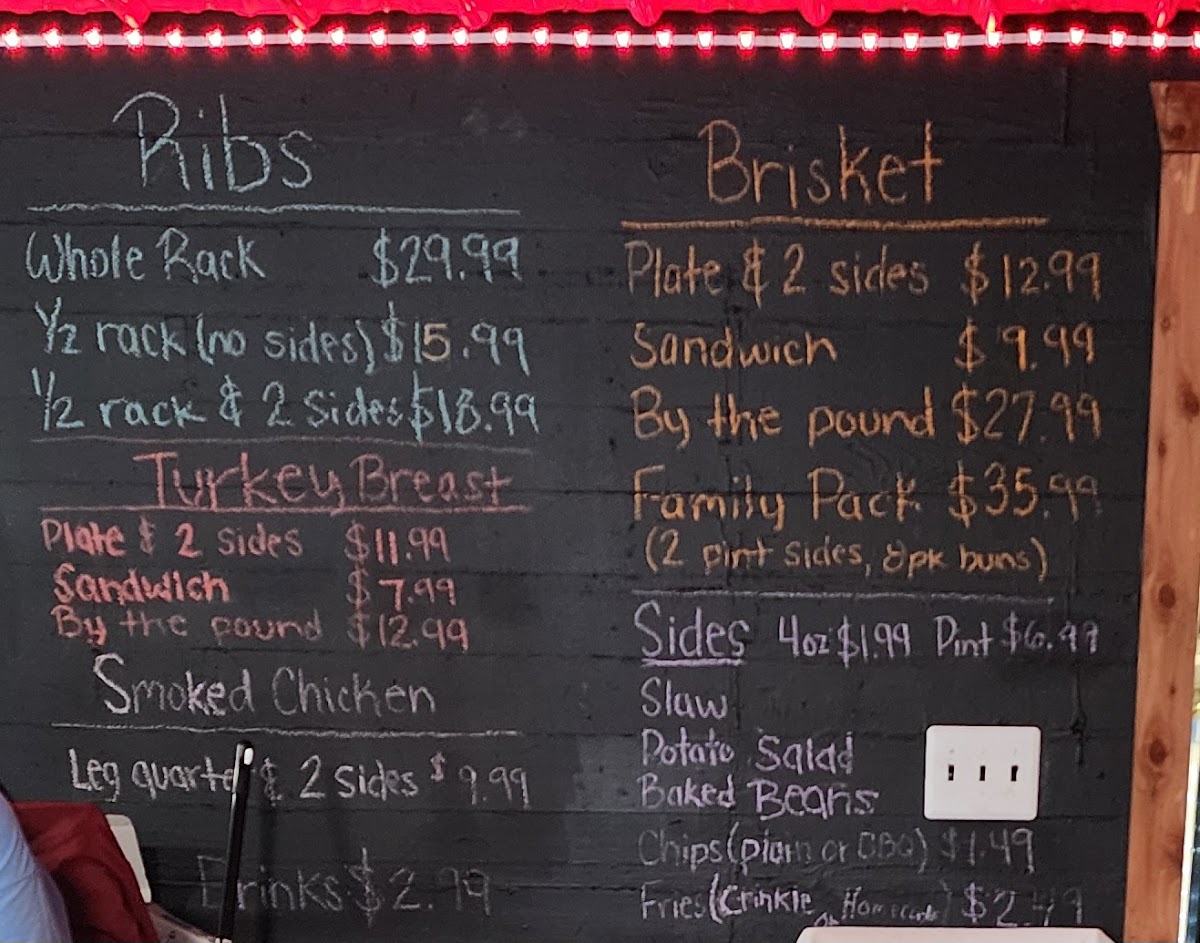 Ribs
Whole Rack $29.99
1/2 rack (no sides) $15.99
1/2 rack & 2 Sides $18.99
Turkey Breast
Plate & 2 sides $11.99
Sandwich $7.99
By the pound $12.99
Smoked Chicken
Leg quarte & 2 sides $9.99
Drinks $2.99
Brisket
Plate & 2 sides $12.99
Sandwich $9.99
By the pound $27.99
Family Pack $35.99
(2 pint sides, 8pk buns)
Sides 4oz $1.99 Pint $6.99
Slaw
Potato Salad
Baked Beans
Chips (plain or BBQ) $1.49
Fries (Crinkle or $2.49